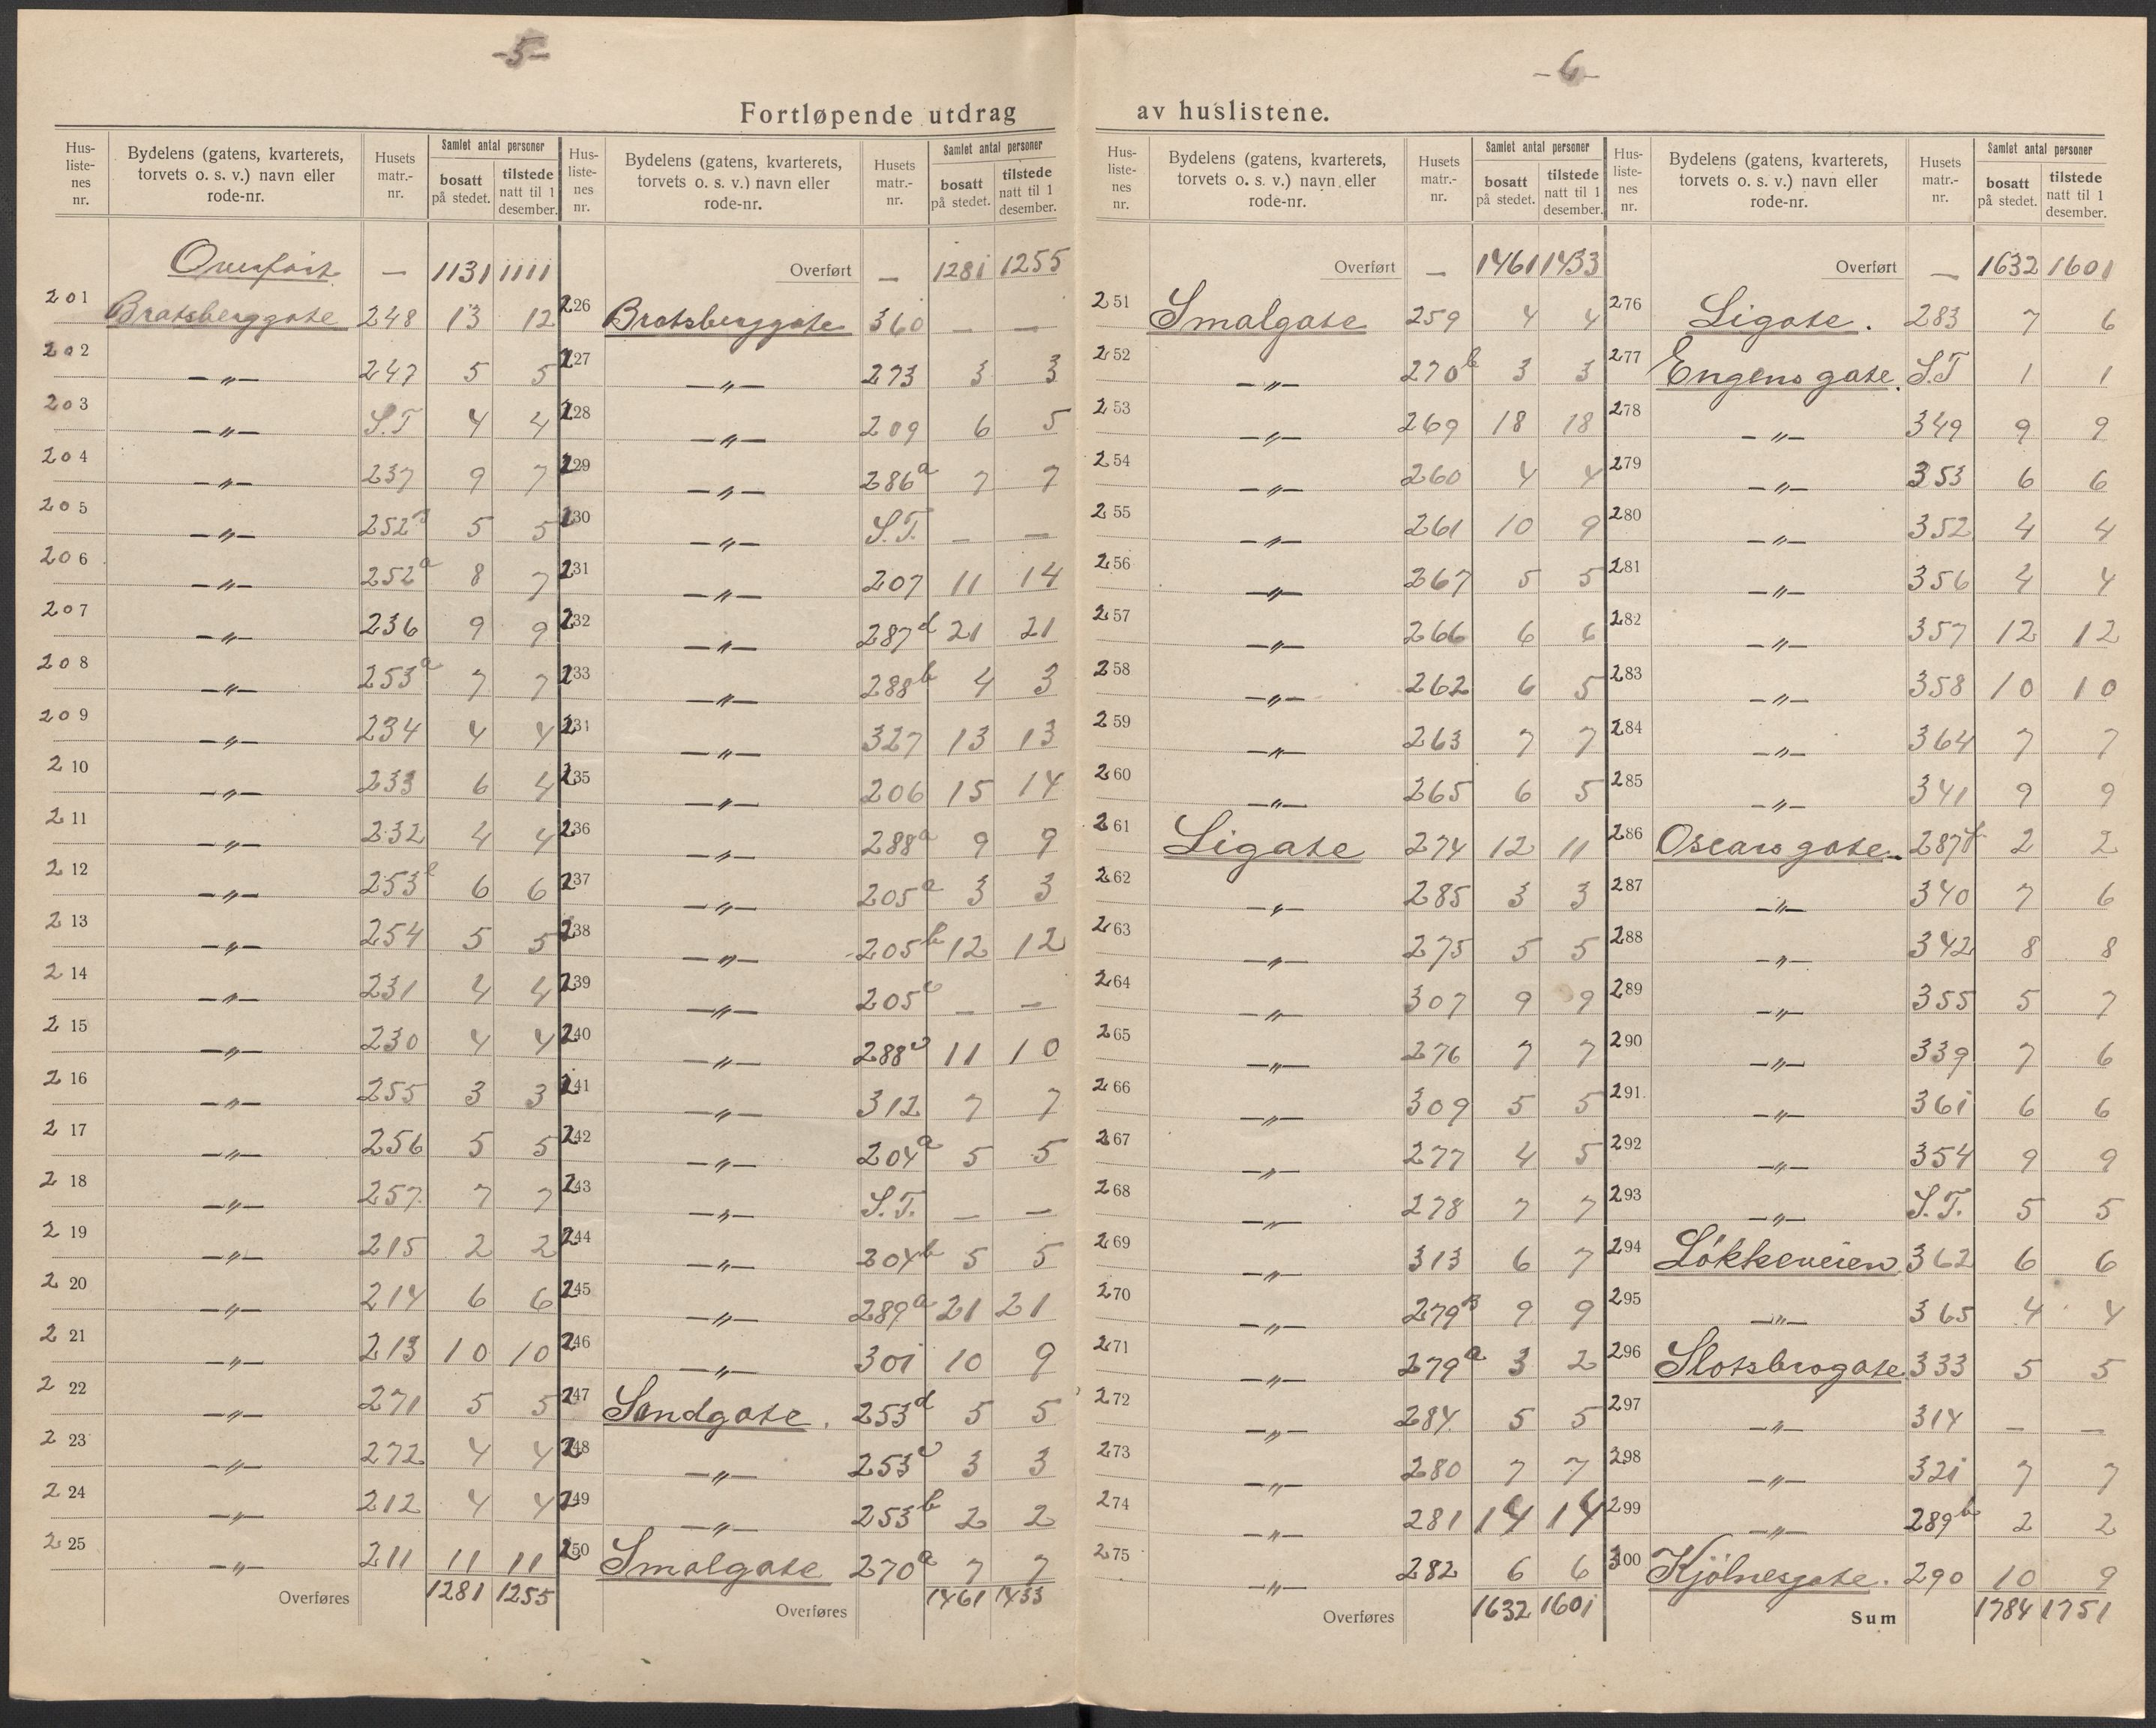 -5-
-6-
Fortløpende utdrag av huslistene.
Hus-liste-nes nr. | Bydelens (gatens, kvarterets, torvets o. s. v.) navn eller rode-nr. | Husets matr.-nr. | Samlet antal personer | bosatt på stedet. | tilstede natt til 1 desember.
Overført — 1131 1111
201 Bratsberggate 248 13 12
202 —„— 247 5 5
203 —„— S.T 4 4
204 —„— 237 9 7
205 —„— 252 5 5
206 —„— 252a 8 7
207 —„— 236 9 9
208 —„— 253a 7 7
209 —„— 234 4 4
210 —„— 233 6 4
211 —„— 232 4 4
212 —„— 253 6 6
213 —„— 254 5 5
214 —„— 231 4 4
215 —„— 230 4 4
216 —„— 255 3 3
217 —„— 256 5 5
218 —„— 257 7 7
219 —„— 215 2 2
220 —„— 214 6 6
221 —„— 213 10 10
222 —„— 271 5 5
223 —„— 272 4 4
224 —„— 212 4 4
225 —„— 211 11 11
Overføres 1281 1255
Hus-liste-nes nr. | Bydelens (gatens, kvarterets, torvets o. s. v.) navn eller rode-nr. | Husets matr.-nr. | Samlet antal personer | bosatt på stedet. | tilstede natt til 1 desember.
Overført — 1281 1255
226 Bratsberggate 360 — —
227 —„— 273 3 3
228 —„— 209 6 5
229 —„— 286a 7 7
230 —„— S.T. — —
231 —„— 207 11 14
232 —„— 287d 21 21
233 —„— 288b 4 3
231 —„— 327 13 13
235 —„— 206 15 14
236 —„— 288a 9 9
237 —„— 205a 3 3
238 —„— 205b 12 12
239 —„— 205c — —
240 —„— 288c 11 10
241 —„— 312 7 7
242 —„— 204a 5 5
243 —„— S.T. — —
244 —„— 204b 5 5
245 —„— 289a 21 21
246 —„— 301 10 9
247 Sandgate. 253d 5 5
248 —„— 253c 3 3
249 —„— 253b 2 2
250 Smalgate 270a 7 7
Overføres 1461 1433
Hus-liste-nes nr. | Bydelens (gatens, kvarterets, torvets o. s. v.) navn eller rode-nr. | Husets matr.-nr. | Samlet antal personer | bosatt på stedet. | tilstede natt til 1 desember.
Overført — 1461 1433
251 Smalgate 259 4 4
252 —„— 270b 3 3
253 —„— 269 18 18
254 —„— 260 4 4
255 —„— 261 10 9
256 —„— 267 5 5
257 —„— 266 6 6
258 —„— 262 6 5
259 —„— 263 7 7
260 —„— 265 6 5
261 Ligate 274 12 11
262 —„— 285 3 3
263 —„— 275 5 5
264 —„— 307 9 9
265 —„— 276 7 7
266 —„— 309 5 5
267 —„— 277 4 5
268 —„— 278 7 7
269 —„— 313 6 7
270 —„— 279b 9 9
271 —„— 279a 3 2
272 —„— 284 5 5
273 —„— 280 7 7
274 —„— 281 14 14
275 —„— 282 6 6
Overføres 1632 1601
Hus-liste-nes nr. | Bydelens (gatens, kvarterets, torvets o. s. v.) navn eller rode-nr. | Husets matr.-nr. | Samlet antal personer | bosatt på stedet. | tilstede natt til 1 desember.
Overført — 1632 1601
276 Ligate. 283 7 6
277 Engensgate. S.T 1 1
278 —„— 349 9 9
279 —„— 353 6 6
280 —„— 352 4 4
281 —„— 356 4 4
282 —„— 357 12 12
283 —„— 358 10 10
284 —„— 364 7 7
285 —„— 341 9 9
286 Oscarsgate. 287 2 2
287 —„— 340 7 6
288 —„— 342 8 8
289 —„— 355 5 7
290 —„— 339 7 6
291. —„— 361 6 6
292 —„— 354 9 9
293 —„— S.T. 5 5
294 Løkkeveien. 362 6 6
295 —„— 365 4 4
296 Slotsbrogate. 333 5 5
297 —„— 314 — —
298 —„— 321 7 7
299 —„— 289b 2 2
300 Kjølnesgate. 290 10 9
Sum 1784 1751